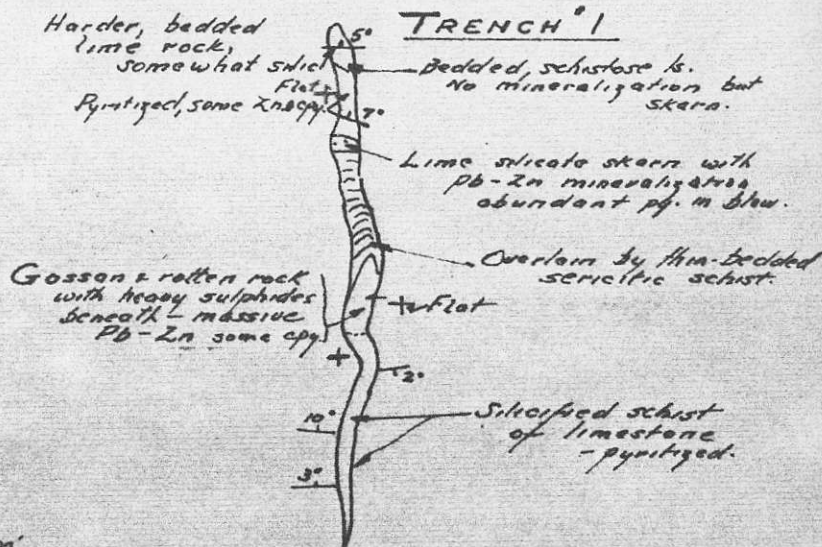 TRENCH #1
Harder, bedded
lime rock,
somewhat silici
5°
Bedded, schistose ls.
No mineralization but
skarn.
Flat
Pyritized, some Zn & cpy.
7°
Lime silicate skarn with
Pb-Zn mineralization
abundant py. in blow.
Overlain by thin-bedded
sericitic schist.
Gossan & rotten rock
with heavy sulphides
beneath - massive
Pb-Zn some cpy.
Flat
2°
10°
Silicified schist
or limestone
- pyritized.
3°